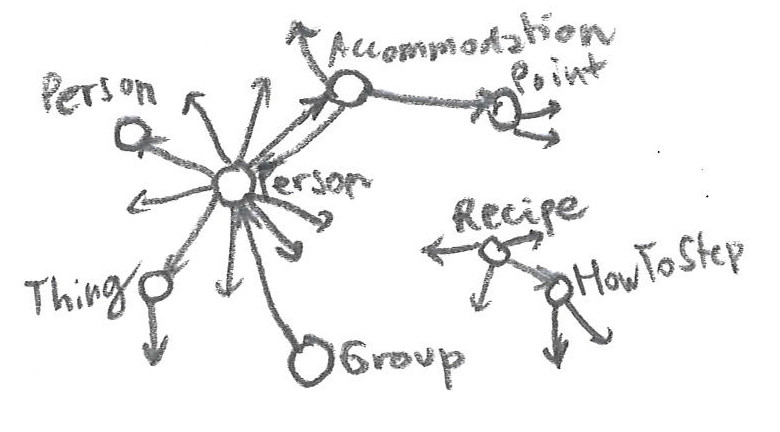 Accommodation
Point
Person
Person
Recipe
HowToStep
Thing
Group